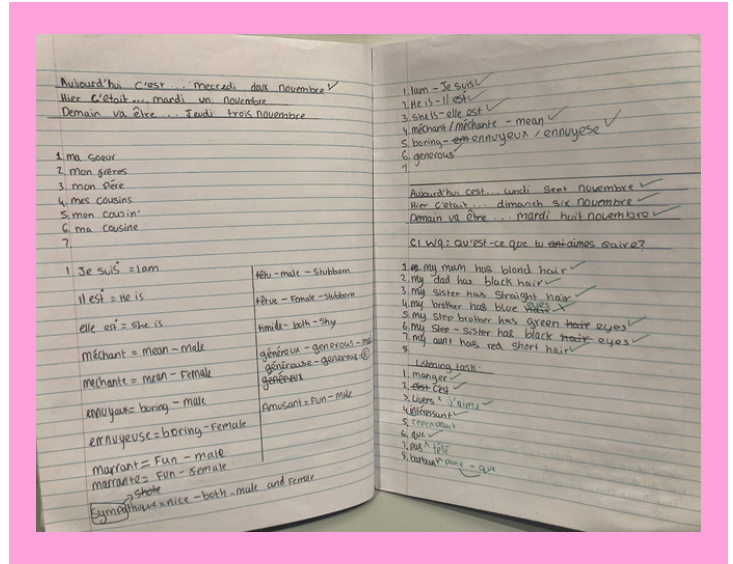 Aujourd'hui c'est... mecredi daix novembre
Hier C'était.... mardi un novembre
Demain va être ... Jeudi trois novembre
1 ma soeur
2 mon frères
3 mon Père
4 mes cousins
5 mon cousin
6 ma cousine
7
1 Je suis = I am
il est = He is
elle est = She is
méchant = mean - male
mechante = mean - Female
ennuyeux = boring - male
ennuyeuse = boring - Female
marrant = Fun - male
marrante = Fun - Female
shote
Sympathique = nice - both - male and Female
têtu - male - Stubborn
têtue - Female - Stubborn
timide - both - Shy
généreux - generous -
généreuse - generous -
généreux
Amusant = Fun - male
1. I am - Je suis
2. He is - il est
3. She is - elle est
4. méchant / méchante - mean
5. boring - ennuyeux / ennuyese
6. generous
7
Aujourd'hui cest... lundi Sept novembre
Hier C'etait ... dimanch six novembre
Demain va être ... mardi huit novembre
C1 WQ: Qu'est-ce que tu aimes faire?
1. my mum has blond hair
2. my dad has black hair
3. my sister has straight hair
4. my brother has blue hair eyes
5. my step brother has green hair eyes
6. my step - sister has black hair eyes
7. my aunt has red short hair
8
Listening task:
1. manger
2. est C'est
3. Livers j'aime
4. intéressant
5.
6. que
7. pas télé
8. - que